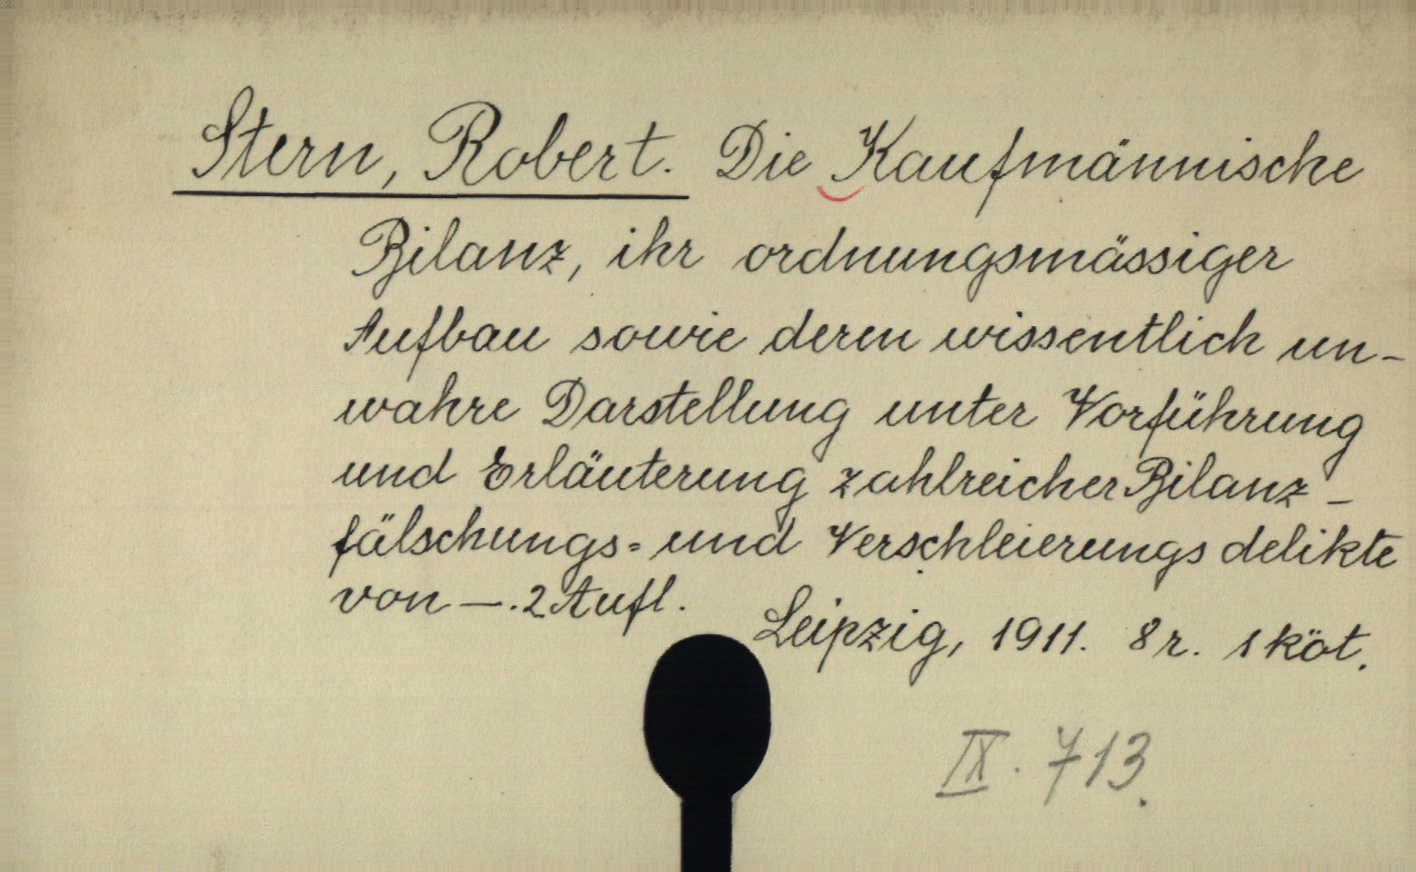 Stern, Robert. Die Kaufmännische
Bilanz, ihr ordnungsmässiger
Aufbau sowie deren wissentlich un-
wahre Darstellung unter Vorführung
und Erläuterung zahlreicher Bilanz-
fälschungs- und Verschleierungsdelikte
von —. 2 Aufl.
Leipzig, 1911. 8r. 1 köt.
IX. 713.